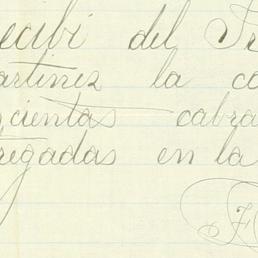 ecibí del Sr
artinez la co
cientas cabra
regadas en la
F